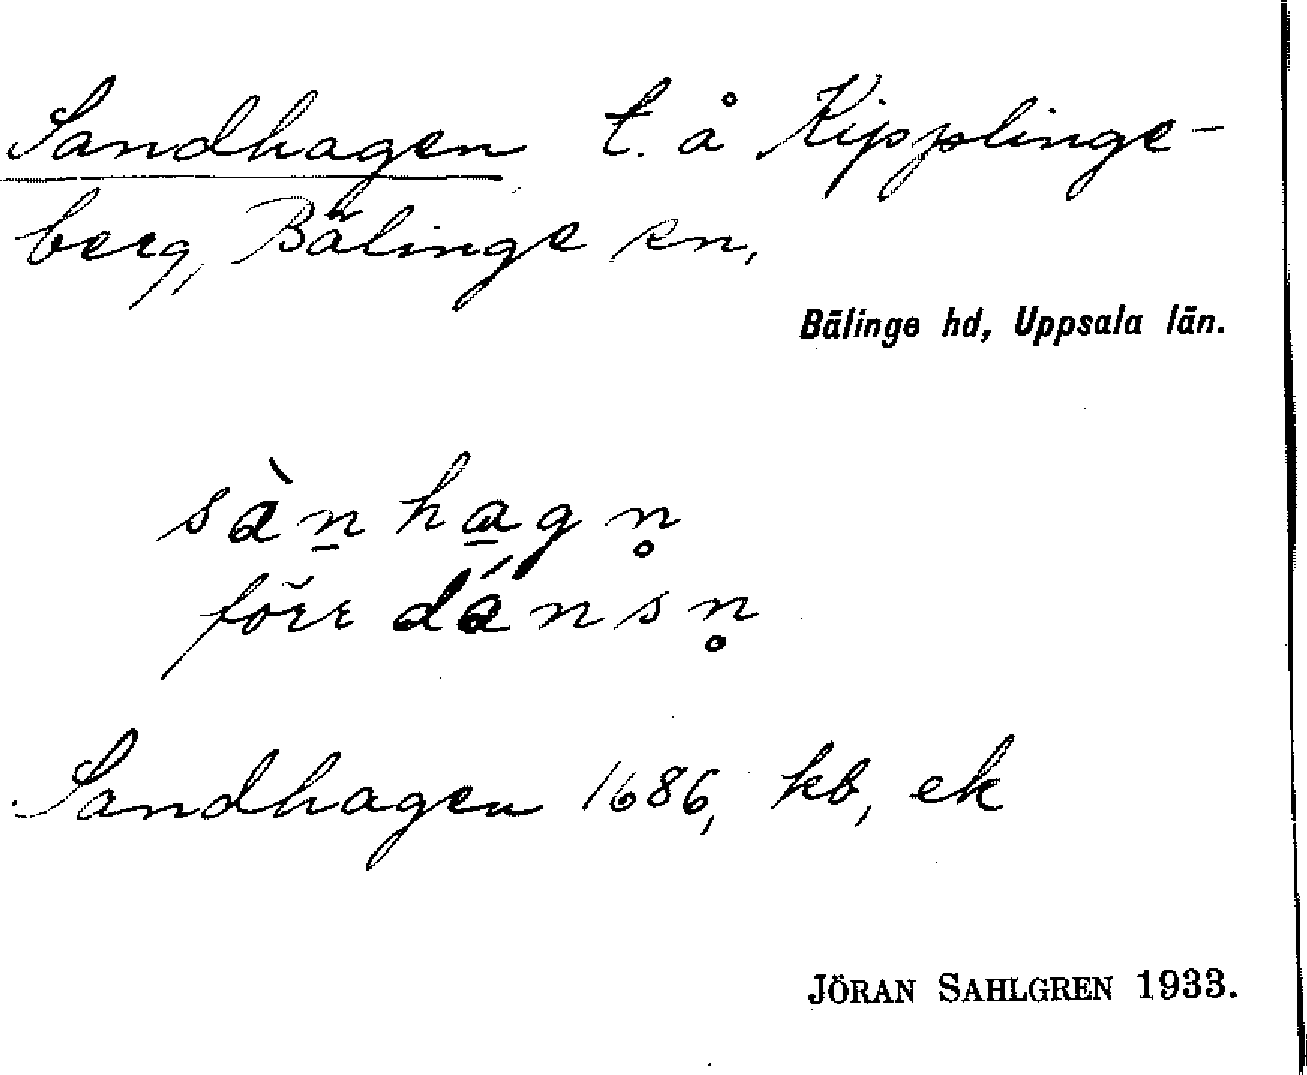 Sandhagen t. å Kipplinge-
berg, Bälinge sn,
Bälinge hd, Uppsala län.
sànhagn̥
förr dánsn̥
Sandhagen 1686, kb, ek
JÖRAN SAHLGREN 1933.